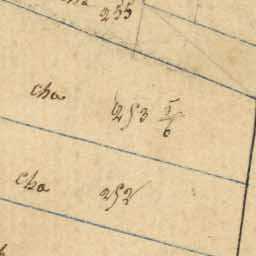 255
cha 253 5/6
cha 252